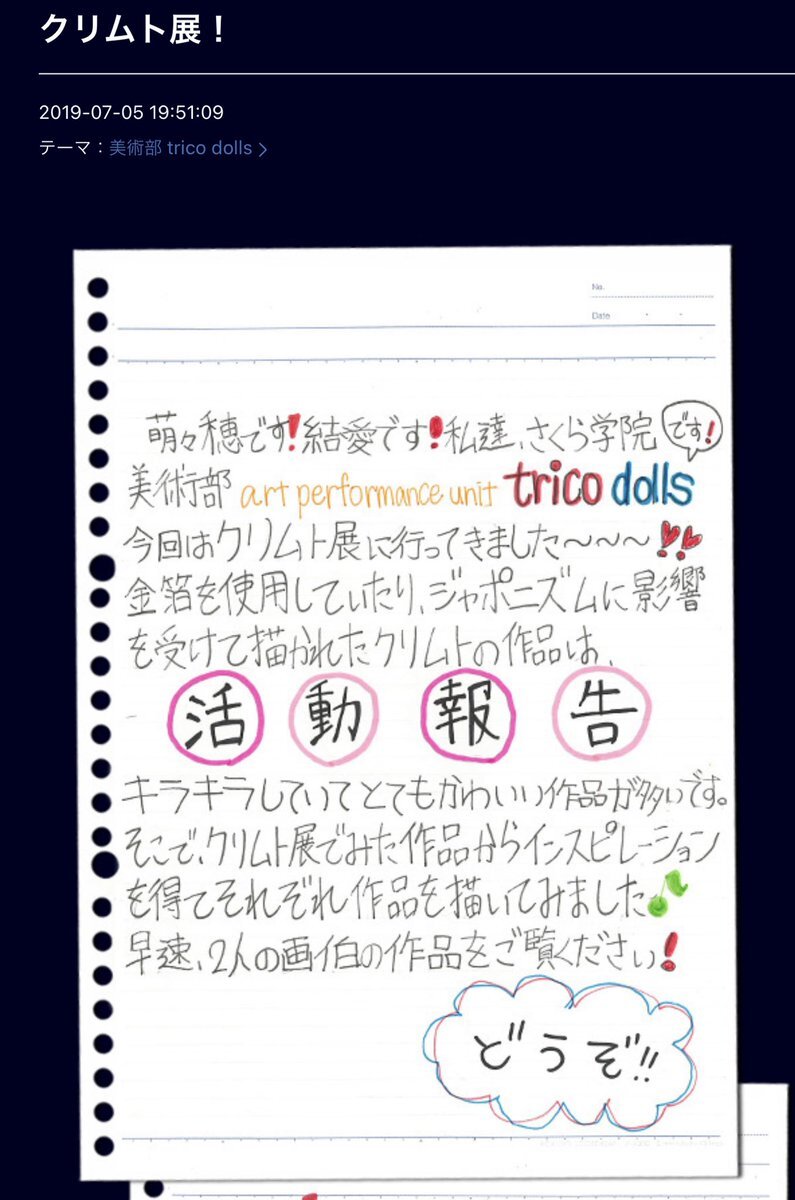 クリムト展！
2019-07-05 19:51:09
テーマ：美術部 trico dolls >
No.
Date
萌々穂です!結愛です!私達、さくら学院 です!
美術部 art performance unit trico dolls
今回はクリムト展に行ってきました〜〜〜!!
金箔を使用していたり、ジャポニズムに影響
を受けて描かれたクリムトの作品は、
活動報告
キラキラしていてとてもかわいい作品が多いです。
そこで、クリムト展でみた作品からインスピレーション
を得てそれぞれ作品を描いてみました♪
早速、2人の画伯の作品をご覧ください!
どうぞ!!